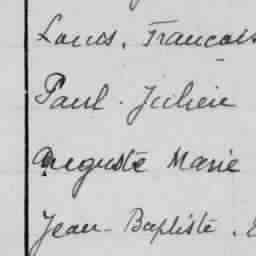 Louis. Francois
Paul. Julien
Auguste Marie
Jean-Baptiste.